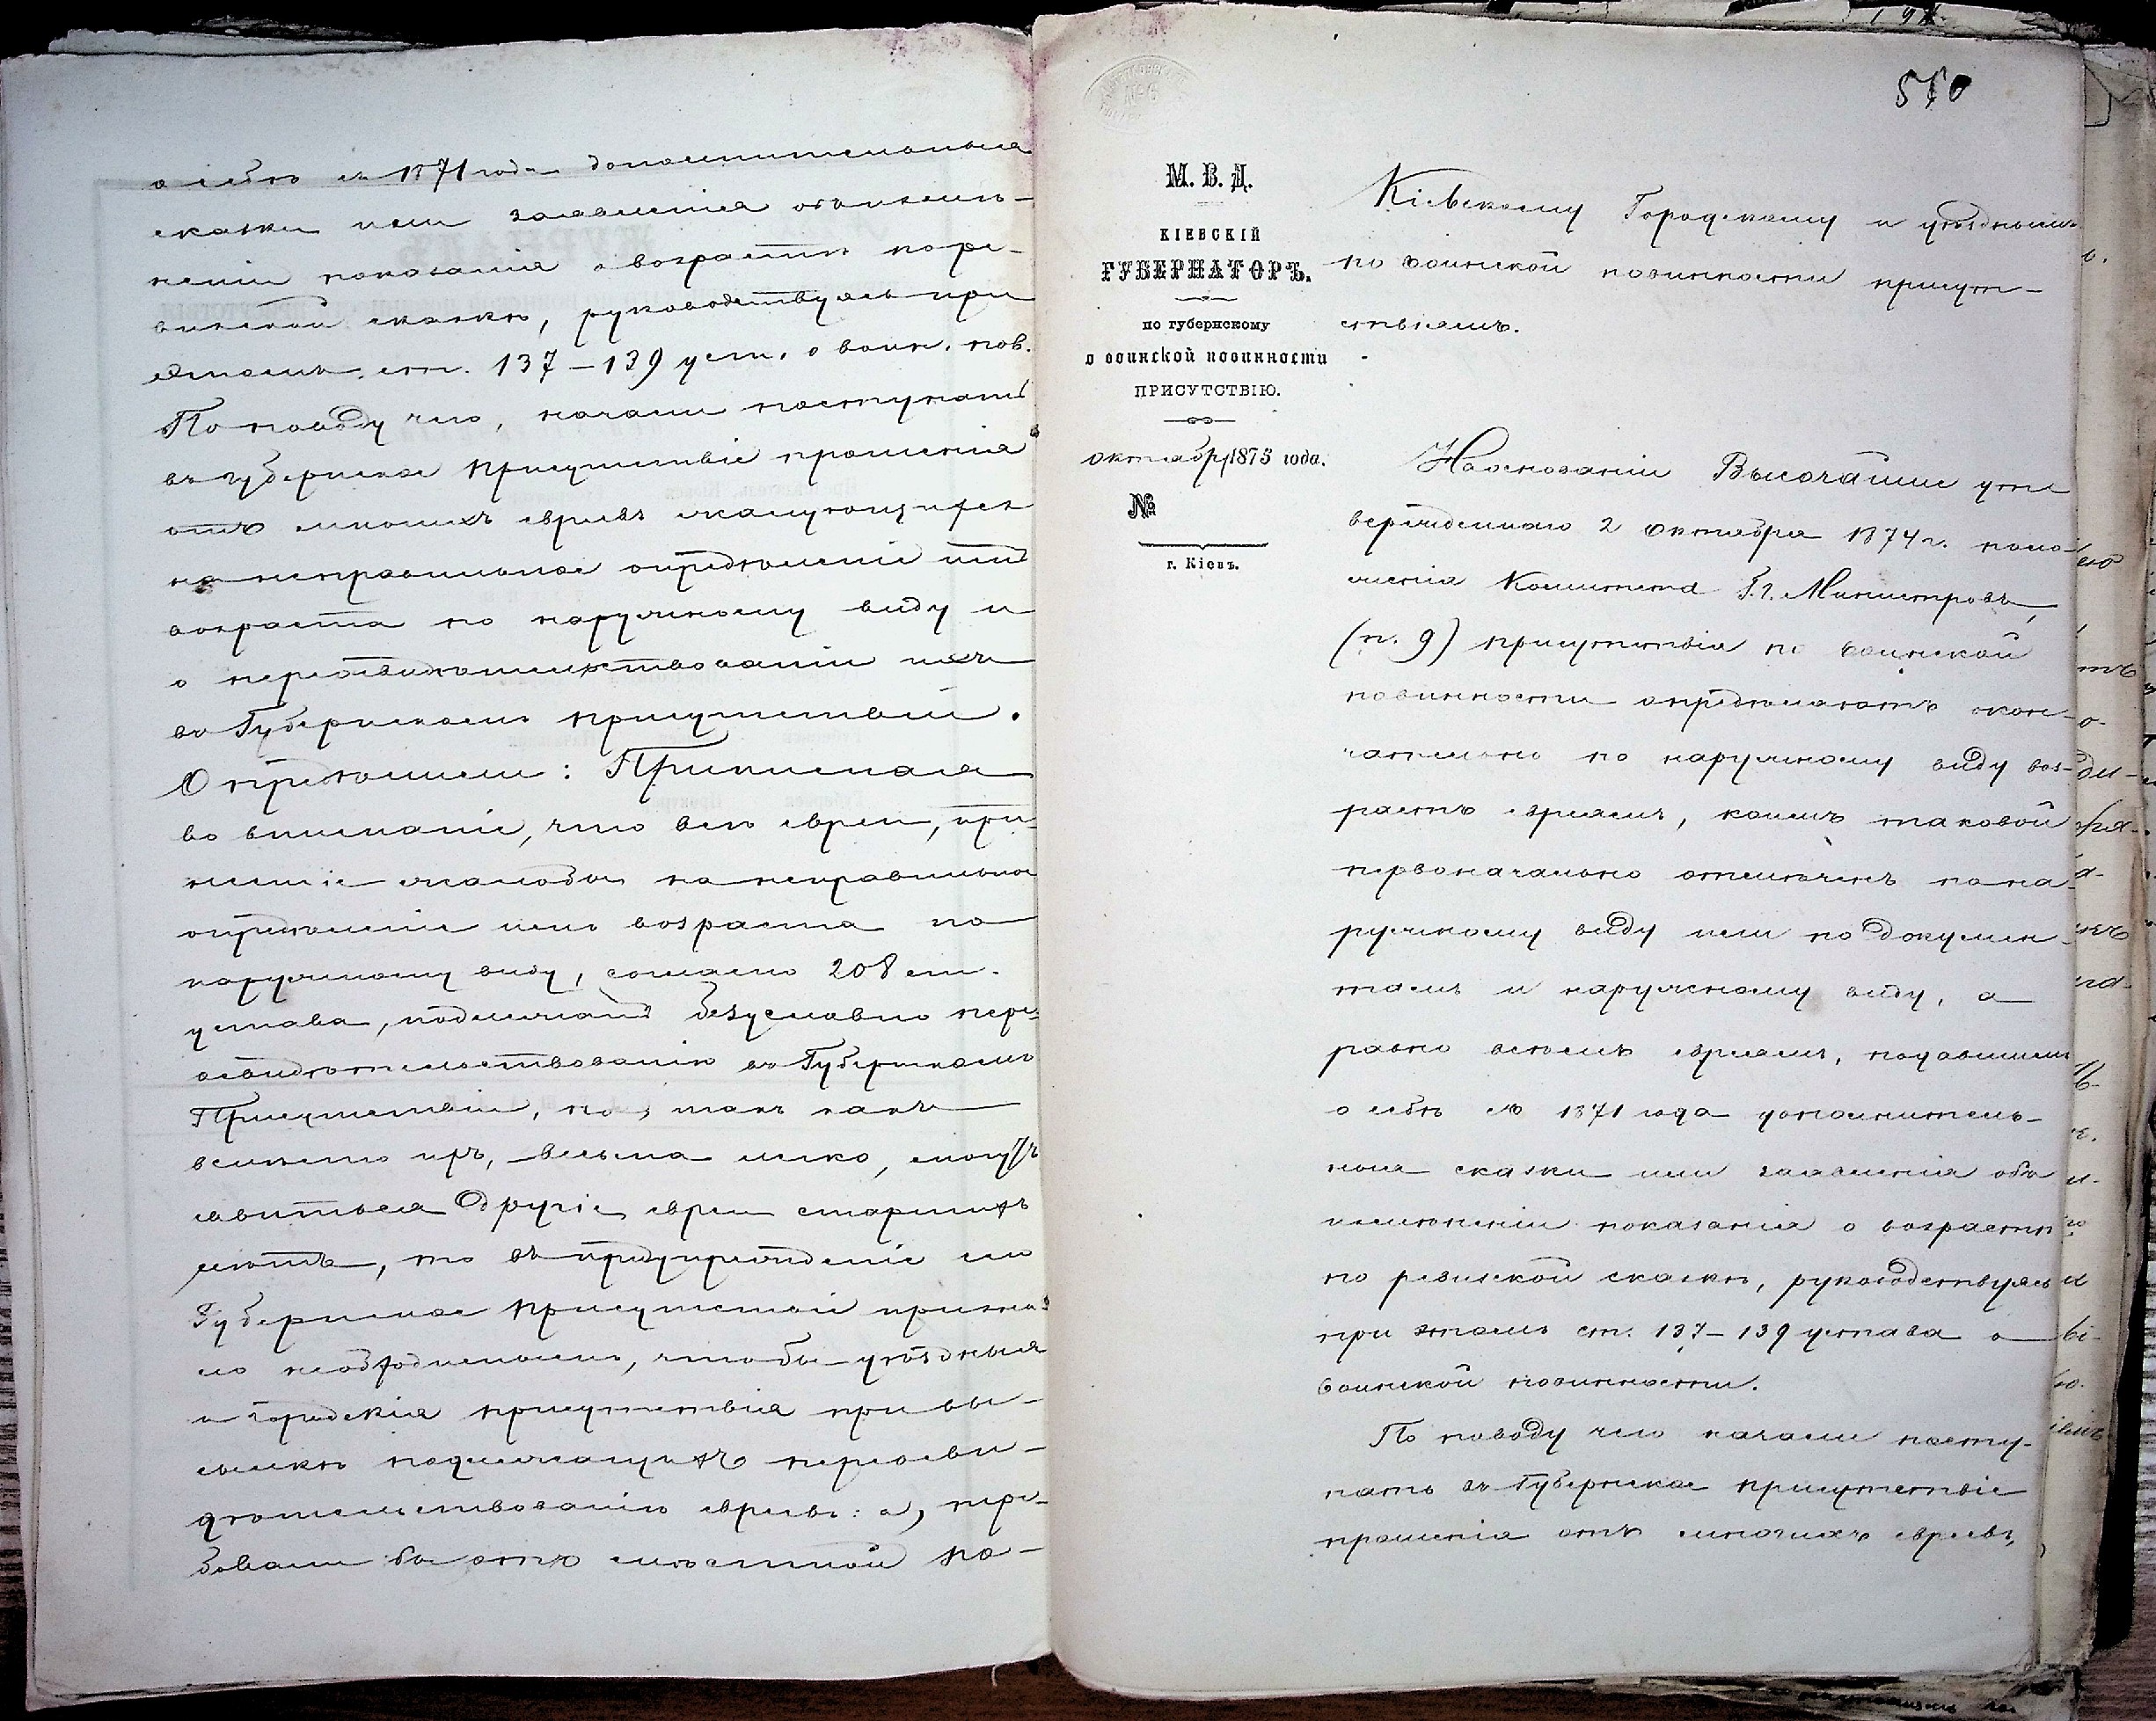 о себѣ съ 1871 года дополнительныя
сказки или заявленія объ измѣ-
неніи показанія о возрастѣ по ре-
визской сказкѣ, руководствуясь при
этомъ ст. 137–139 уст. о воин. пов.
По поводу чего, начали поступать
въ губернское Присутствіе прошенія
отъ многихъ евреевъ жалующихся
на неправильное опредѣленіе имъ
возраста по наружному виду и
о переосвидѣтельствованіи ихъ
въ Губернскомъ присутствіи.
Опредѣлили: Принимая
во вниманіе, что всѣ евреи, при-
несшіе жалобы на неправильное
опредѣленіе имъ возраста по
наружному виду, согласно 208 ст.
устава, подлежатъ безусловно пере-
освидѣтельствованію въ Губернскомъ
Присутствіи, но, такъ какъ
вмѣсто ихъ, весьма легко, могутъ
явиться другіе евреи старшихъ
лѣтъ, то въ предупрежденіе сего
Губернское Присутствіе призна-
ло необходимымъ, чтобы уѣздныя
и городскія присутствія при вы-
сылкѣ подлежащихъ переосви-
дѣтельствованію евреевъ: а) тре-
бовали бы отъ мѣстной по-
570
М. В. Д.
КІЕВСКІЙ
ГУБЕРНАТОРЪ.
по губернскому
о воинской повинности
ПРИСУТСТВІЮ.
октября 1875 года.
№
г. Кіевъ.
Кіевскому Городскому и уѣзднымъ
по воинской повинности присут-
ствіямъ.
На основаніи Высочайше утв
вержденнаго 2 Октября 1874 г. поло-
женія Комитета Г.г. Министровъ,
(п. 9) присутствія по воинской
повинности опредѣляютъ окон-
чательно по наружному виду воз-
растъ евреямъ, коимъ таковой
первоначально отмѣченъ по на-
ружному виду или по докумен-
тамъ и наружному виду, а
равно всѣмъ евреямъ, подавшимъ
о себѣ съ 1871 года дополнитель-
ныя сказки или заявленія объ
измѣненіи показанія о возрастѣ
по ревизской сказкѣ, руководствуясь
при этомъ ст. 137–139 устава о
воинской повинности.
По поводу чего начали посту-
пать въ Губернское присутствіе
прошенія отъ многихъ евреевъ,